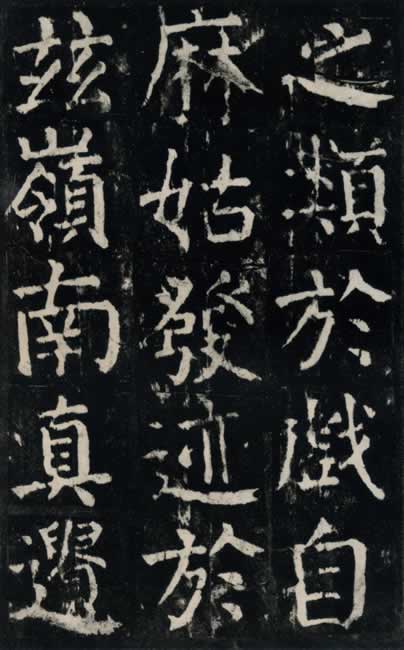 之類於戲自
麻姑發迹於
玆嶺南真遺